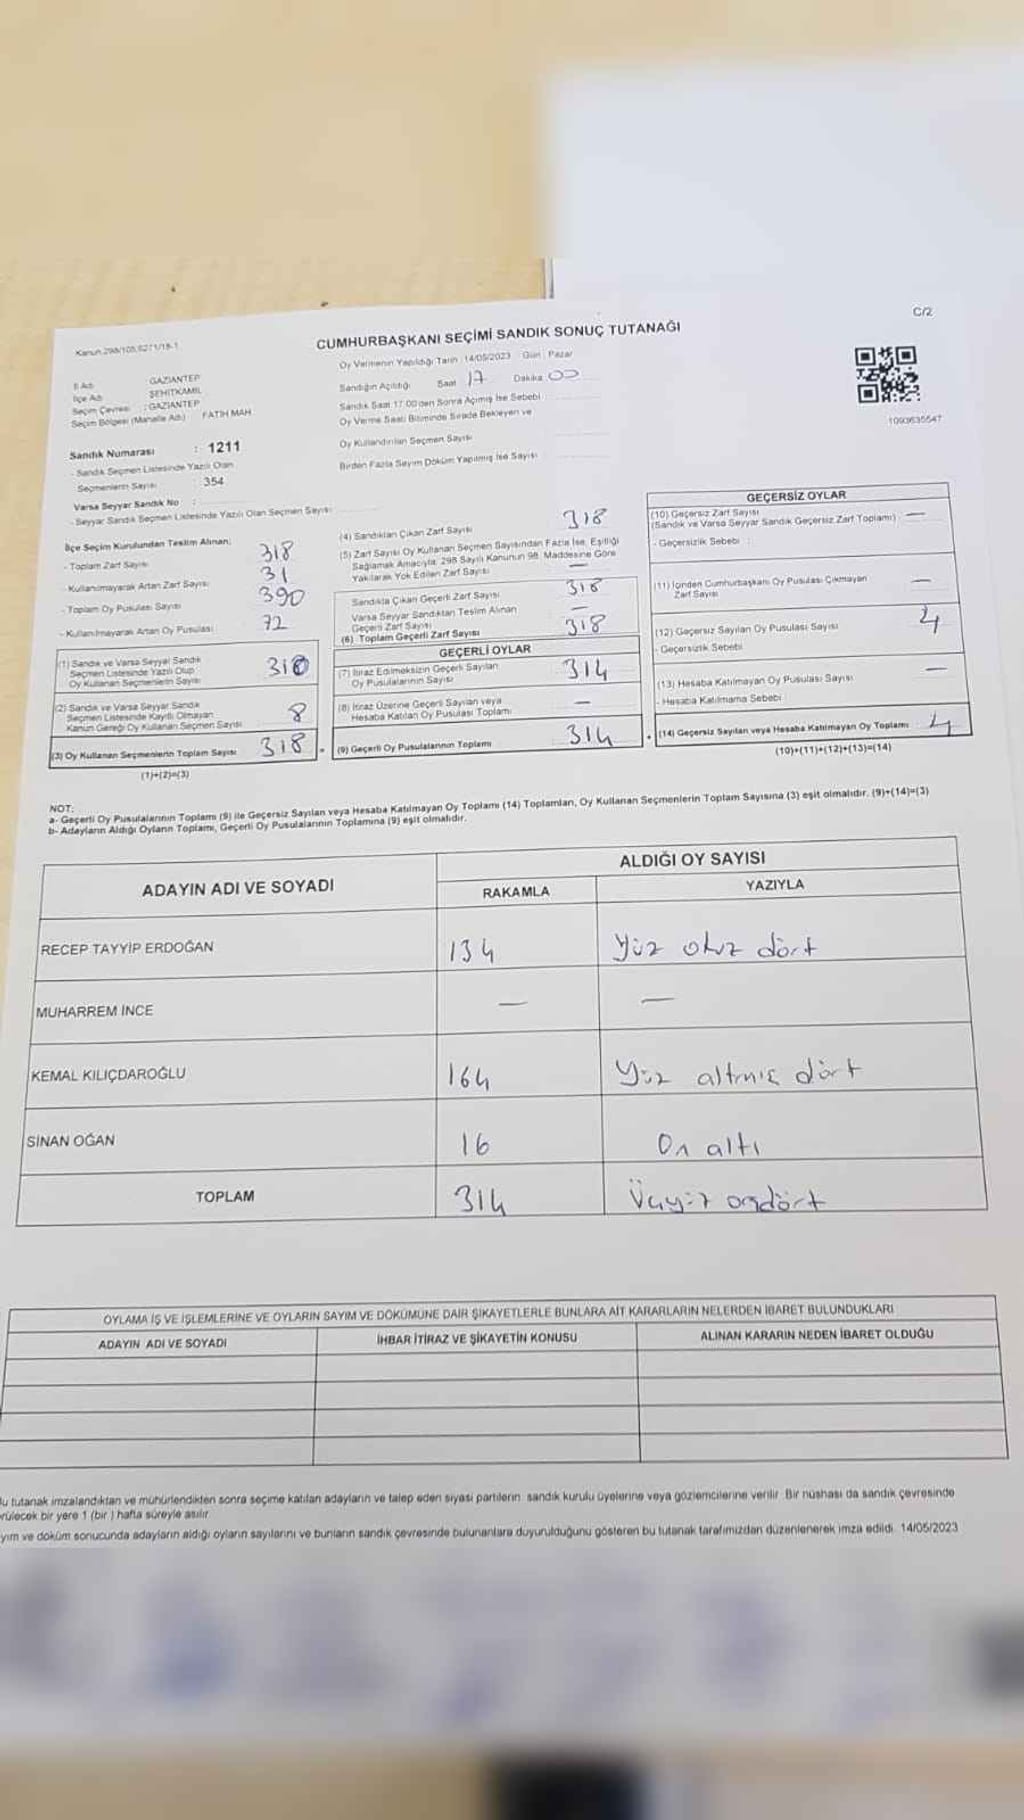 C/2
Kanun 298/105,6271/18-1
CUMHURBAŞKANI SEÇİMİ SANDIK SONUÇ TUTANAĞI
1093635547
İl Adı GAZİANTEP
İlçe Adı ŞEHİTKAMİL
Seçim Çevresi : GAZİANTEP
Seçim Bölgesi (Mahalle Adı) FATİH MAH.
Sandık Numarası : 1211
- Sandık Seçmen Listesinde Yazılı Olan
Seçmenlerin Sayısı : 354
Varsa Seyyar Sandık No :
- Seyyar Sandık Seçmen Listesinde Yazılı Olan Seçmen Sayısı
Oy Vermenin Yapıldığı Tarih : 14/05/2023 Gün : Pazar
Sandığın Açıldığı Saat 17 Dakika 00
Sandık Saat 17:00'den Sonra Açılmış İse Sebebi
Oy Verme Saati Bitiminde Sırada Bekleyen ve
Oy Kullandırılan Seçmen Sayısı
Birden Fazla Sayım Döküm Yapılmış İse Sayısı
İlçe Seçim Kurulundan Teslim Alınan;
- Toplam Zarf Sayısı 318
- Kullanılmayarak Artan Zarf Sayısı 31
- Toplam Oy Pusulası Sayısı 390
- Kullanılmayarak Artan Oy Pusulası 72
(1) Sandık ve Varsa Seyyar Sandık
Seçmen Listesinde Yazılı Olup
Oy Kullanan Seçmenlerin Sayısı
(2) Sandık ve Varsa Seyyar Sandık
Seçmen Listesinde Kayıtlı Olmayan
Kanun Gereği Oy Kullanan Seçmen Sayısı 8
(3) Oy Kullanan Seçmenlerin Toplam Sayısı 318
(1)+(2)=(3)
(4) Sandıktan Çıkan Zarf Sayısı 318
(5) Zarf Sayısı Oy Kullanan Seçmen Sayısından Fazla İse, Eşitliği
Sağlamak Amacıyla; 298 Sayılı Kanunun 98. Maddesine Göre
Yakılarak Yok Edilen Zarf Sayısı —
Sandıkta Çıkan Geçerli Zarf Sayısı 318
Varsa Seyyar Sandıktan Teslim Alınan
Geçerli Zarf Sayısı —
(6) Toplam Geçerli Zarf Sayısı 318
GEÇERLİ OYLAR
(7) İtiraz Edilmeksizin Geçerli Sayılan
Oy Pusulalarının Sayısı 314
(8) İtiraz Üzerine Geçerli Sayılan veya
Hesaba Katılan Oy Pusulası Toplamı —
(9) Geçerli Oy Pusulalarının Toplamı 314
GEÇERSİZ OYLAR
(10) Geçersiz Zarf Sayısı —
(Sandık ve Varsa Seyyar Sandık Geçersiz Zarf Toplamı)
- Geçersizlik Sebebi :
(11) İçinden Cumhurbaşkanı Oy Pusulası Çıkmayan
Zarf Sayısı —
(12) Geçersiz Sayılan Oy Pusulası Sayısı 4
- Geçersizlik Sebebi
(13) Hesaba Katılmayan Oy Pusulası Sayısı —
- Hesaba Katılmama Sebebi
(14) Geçersiz Sayılan veya Hesaba Katılmayan Oy Toplamı 4
(10)+(11)+(12)+(13)=(14)
NOT:
a- Geçerli Oy Pusulalarının Toplamı (9) ile Geçersiz Sayılan veya Hesaba Katılmayan Oy Toplamı (14) Toplamları, Oy Kullanan Seçmenlerin Toplam Sayısına (3) eşit olmalıdır. (9)+(14)=(3)
b- Adayların Aldığı Oyların Toplamı, Geçerli Oy Pusulalarının Toplamına (9) eşit olmalıdır.
ADAYIN ADI VE SOYADI
ALDIĞI OY SAYISI
RAKAMLA YAZIYLA
RECEP TAYYİP ERDOĞAN 134 Yüz otuz dört
MUHARREM İNCE — —
KEMAL KILIÇDAROĞLU 164 Yüz altmış dört
SİNAN OĞAN 16 On altı
TOPLAM 314 Üçyüz ondört
OYLAMA İŞ VE İŞLEMLERİNE VE OYLARIN SAYIM VE DÖKÜMÜNE DAİR ŞİKAYETLERLE BUNLARA AİT KARARLARIN NELERDEN İBARET BULUNDUKLARI
ADAYIN ADI VE SOYADI İHBAR İTİRAZ VE ŞİKAYETİN KONUSU ALINAN KARARIN NEDEN İBARET OLDUĞU
tutanak imzalandıktan ve mühürlendikten sonra seçime katılan adayların ve talep eden siyasi partilerin sandık kurulu üyelerine veya gözlemcilerine verilir. Bir nüshası da sandık çevresinde
bir yere 1 (bir) hafta süreyle asılır.
ve döküm sonucunda adayların aldığı oyların sayılarını ve bunların sandık çevresinde bulunanlara duyurulduğunu gösteren bu tutanak tarafımızdan düzenlenerek imza edildi. 14/05/2023